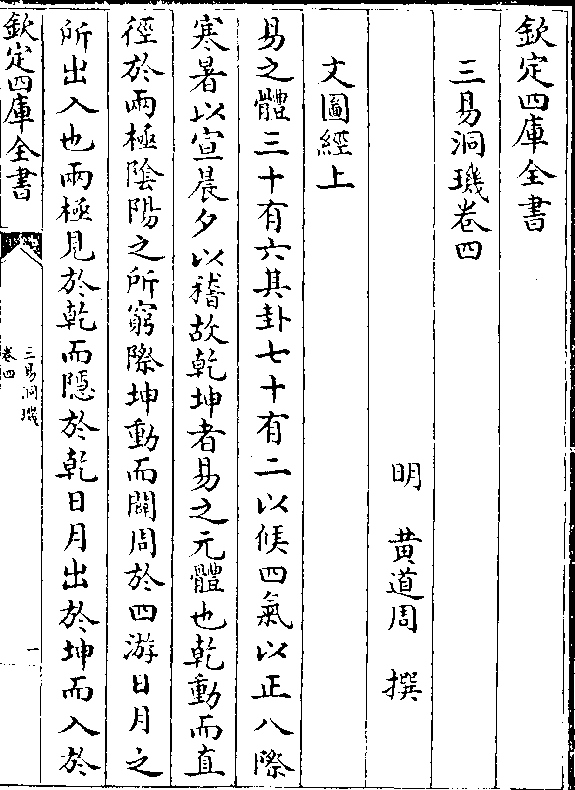 欽定四庫全書
三易洞璣卷四
明 黄道周 撰
文圖經上
易之體三十有六其卦七十有二以候四氣以正八際
寒暑以宣晨夕以稽故乾坤者易之元體也乾動而直
徑於兩極陰陽之所窮際坤動而闢周於四游日月之
所出入也兩極見於乾而隱於乾日月出於坤而入於
欽定四庫全書
三易洞璣
卷四
一